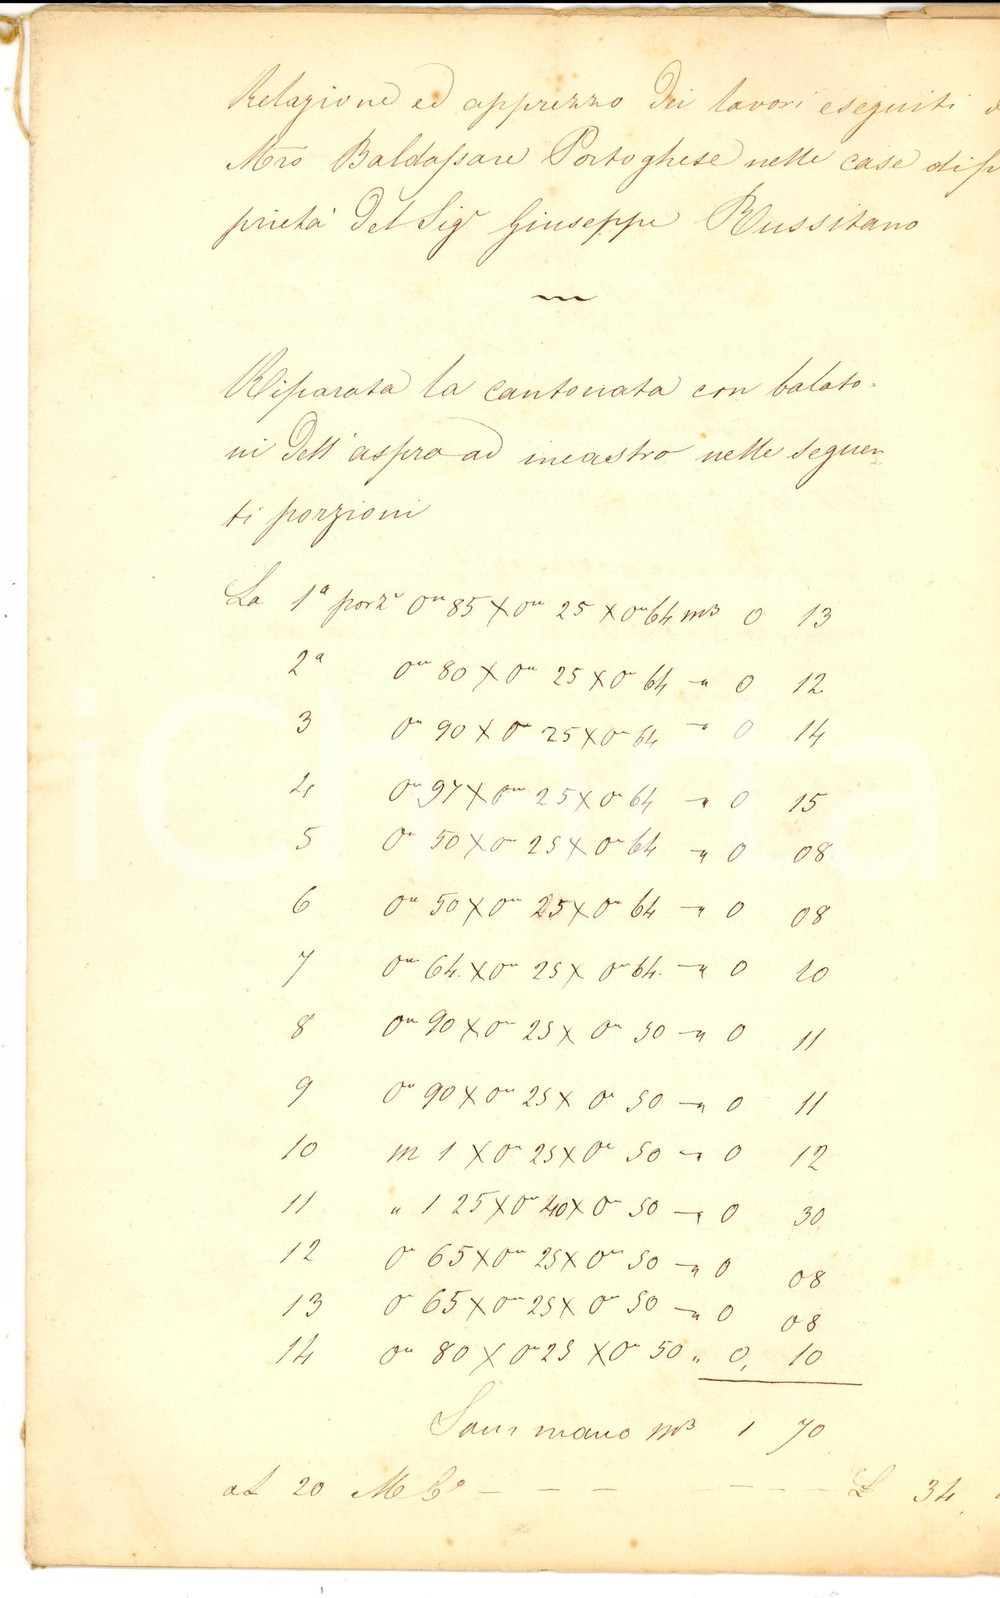 Relazione ed apprezzo dei lavori eseguiti d
Mro Baldassare Portoghese nelle case di p
prietà del Sigr Giuseppe Russitano
Riparata la cantonata con balato-
ni dell'aspro ad incastro nelle seguen=
ti porzioni
La 1a porze 0m 85 X 0m 25 X 0m 64 m3 0 13
2a 0m 80 X 0m 25 X 0m 64 " 0 12
3 0m 90 X 0m 25 X 0m 64 " 0 14
4 0m 97 X 0m 25 X 0m 64 " 0 15
5 0m 50 X 0m 25 X 0m 64 " 0 08
6 0m 50 X 0m 25 X 0m 64 " 0 08
7 0m 64. X 0m 25 X 0m 64. " 0 10
8 0m 90 X 0m 25 X 0m 50 " 0 11
9 0m 90 X 0m 25 X 0m 50 " 0 11
10 m 1 X 0m 25 X 0m 50 " 0 12
11 " 1 25 X 0m 40 X 0m 50 " 0 30
12 0m 65 X 0m 25 X 0m 50 " 0 08
13 0m 65 X 0m 25 X 0m 50 " 0 08
14 0m 80 X 0m 25 X 0m 50 " 0, 10
Sommano m3 1 70
a L 20 M Co - - - - - - - L 34,
iCharta